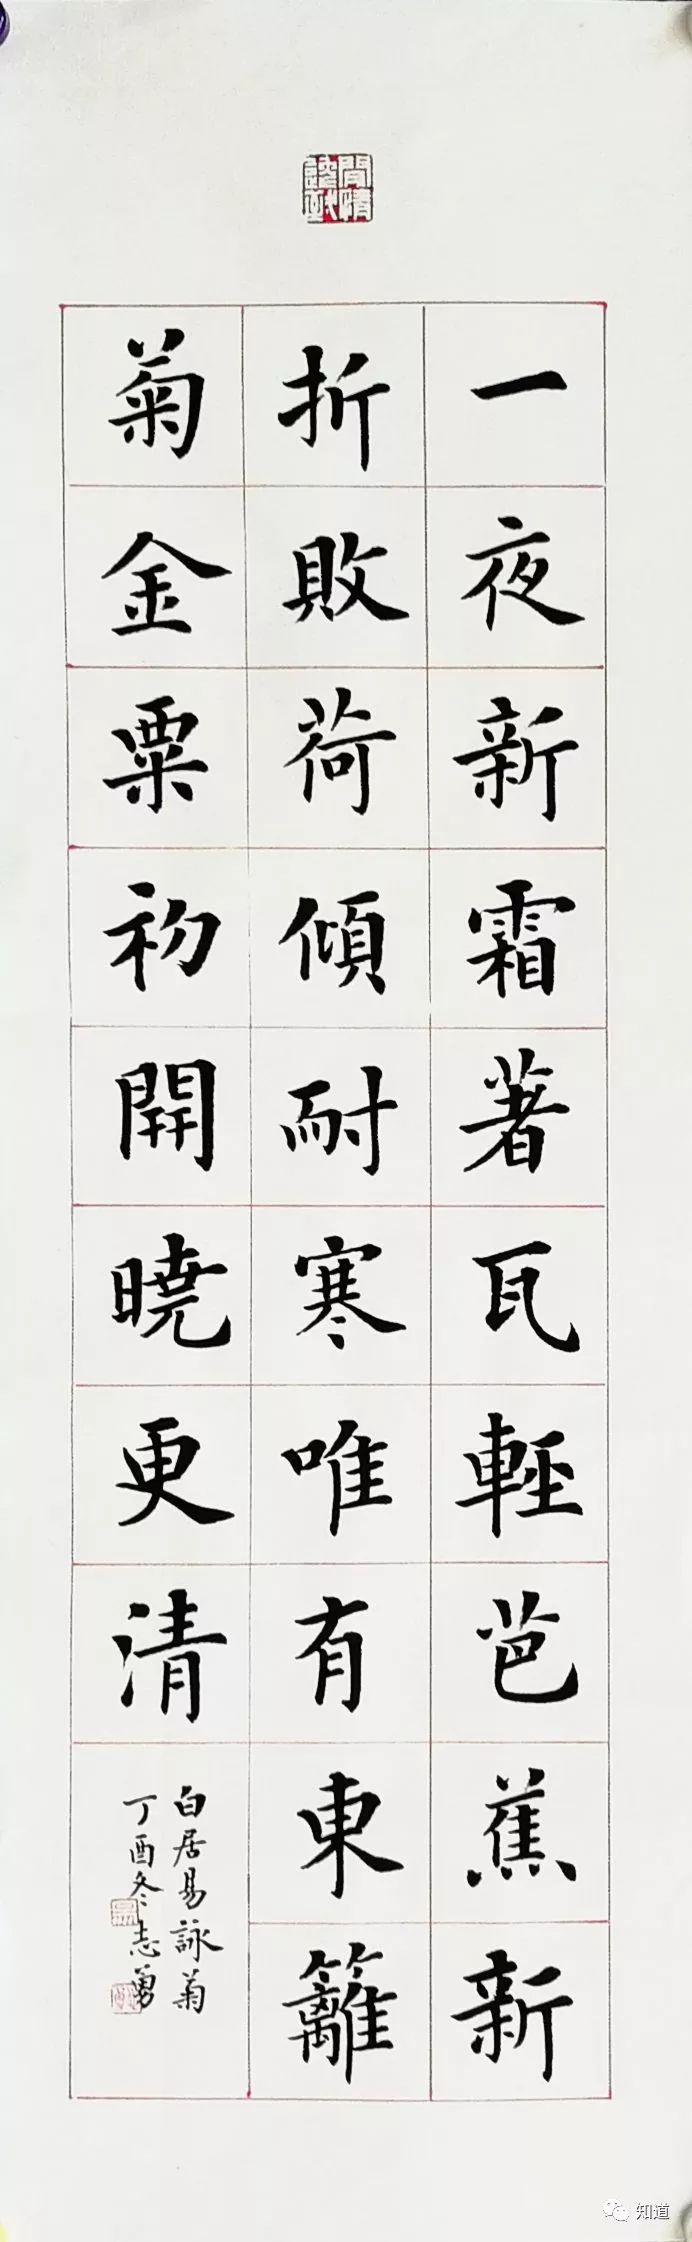 一夜新霜著瓦輕芭蕉新
折敗荷傾耐寒唯有東籬
菊金粟初開曉更清
白居易詠菊
丁酉冬志勇
知道